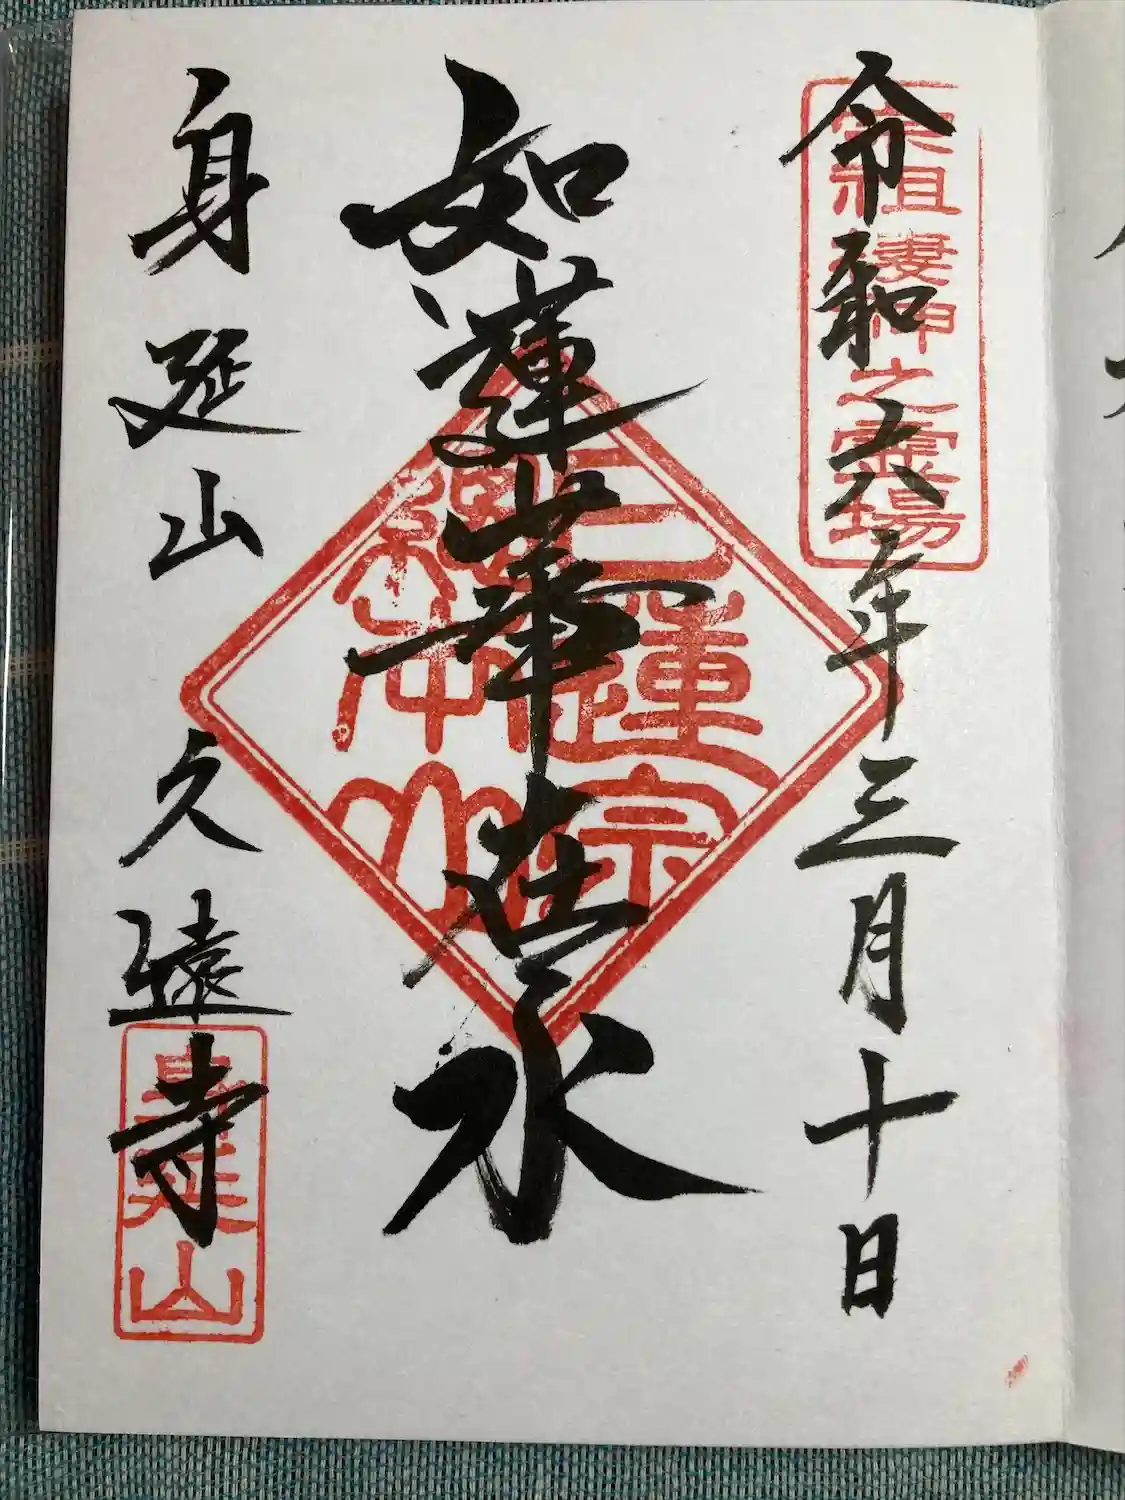 宗祖棲神之靈場
令和六年三月十日
如蓮華在水
日蓮宗
總本山
身延山久遠寺
身延山